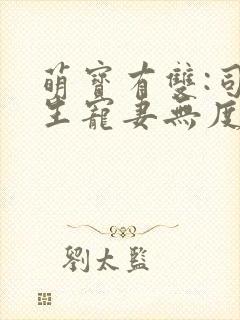 萌寶有雙:司
生寵妻無度
劉太監